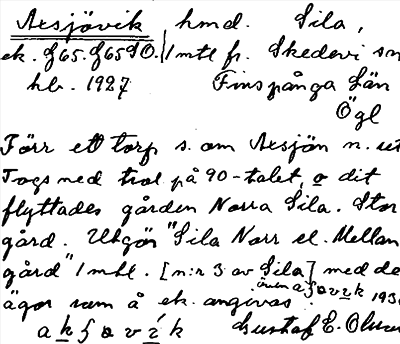 Aesjövik, hmd. Sila,
ek. J65. J65 SO. 1 mtl fr. Skedevi sn
hb. 1927 Finspånga Län
Ögl
Förr ett torp s. om Aesjön n. ut
Togs med trol på 90-talet, o dit
flyttades gården Norra Sila. Stor
gård. Utgör "Sila Norr el. Mellan
gård" 1 mtl. [n:r 3 av Sila] med de
ägor som å ek. angivas. även
a k v i k 193
Gustaf E. Olsson